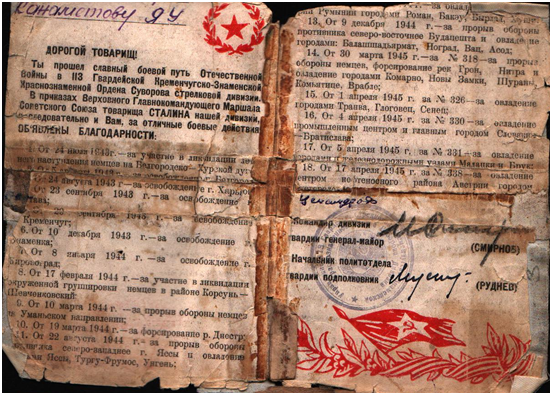 ДОРОГОЙ ТОВАРИЩ!
Ты прошел славный боевой путь Отечественной
Войны в 113 Гвардейской Кременчугско-Знаменской
Краснознаменной Ордена Суворова стрелковой дивизии.
В приказах Верховного Главнокомандующего Маршала
Советского Союза товарища СТАЛИНА нашей дивизии,
следовательно и Вам, за отличные боевые действия
ОБ'ЯВЛЕНЫ БЛАГОДАРНОСТИ:
1. От 24 июля 1943 г.—за участие в ликвидации
наступления немцев на
августа 1943 г.—за освобождение г.
23 сентября 1943 г.—за освобождение
сентября г.—за освобождение
Кременчуг;
6. От 10 декабря 1943 г.—за освобождение
Знаменка;
7. От 8 января 1944 г.—за освобождение
8. От 17 февраля 1944 г.—за участие в ликвидации
окруженной группировки немцев в районе Корсунь
Шевченковский;
От 10 марта 1944 г.—за прорыв обороны немцев
Уманьском направлении;
10. От 19 марта 1944 г.—за форсирование р. Днестр;
11. От 22 августа 1944 г.—за прорыв обороны
северо-западнее г. Яссы и овладение
Яссы, Тыргу-Фрумос, Унгень;
Румынии городами Роман, Бакэу, Бырлад,
13. От 9 декабря 1944 г.—за прорыв обороны
противника северо-восточнее Будапешта и овладение
городами: Балашшадьярмат, Ноград, Вац, Асод;
14. От 30 марта 1945 г.— № 318—за прорыв
обороны немцев, форсирование рек Грон, Нитра и
овладение городами Комарно, Нове Замки, Шураны,
Комьятице, Врабле;
15. От 1 апреля 1945 г. за № 326—за овладение
городами Трнава, Глоговец, Сенец;
16. От 4 апреля 1945 г. за № 330—за овладение
промышленным центром и главным городом
Братислава;
17. От 5 апреля 1945 г. № 331—за овладение
железнодорожными узлами Малацки и Брук
18. От 17 апреля 1945 г. № 338—за овладение
центром нефтеносного района Австрии городом
Командир дивизии
гвардии генерал-майор
(СМИРНОВ)
Начальник политотдела
гвардии подполковник
(РУДНЕВ)